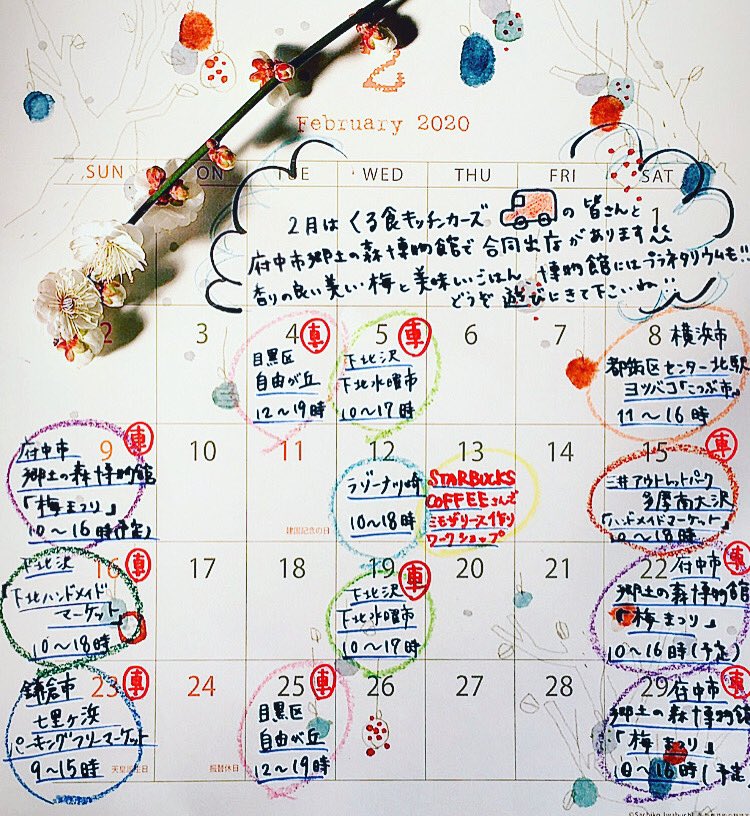 2
February 2020
SUN ON TUE WED THU FRI SAT
2月は くる食キッチンカーズ の 皆さんと
府中市郷土の森博物館で 合同出店があります
香りの良い美しい梅と美味しいごはん 博物館にはプラネタリウムも!!
どうぞ 遊びにきて下さいね
1
2 3 4 5 6 7 8
車
目黒区
自由が丘
12〜19時
車
下北沢
下北水曜市
10〜17時
横浜市
都筑区センター北駅
ヨツバコ「こつぶ市」
11〜16時
9 10 11 12 13 14 15
車
府中市
郷土の森博物館
「梅まつり」
10〜16時(予定)
建国記念の日
ラゾーナ川崎
10〜18時
STARBUCKS
COFFEEさんで
ミモザリース作り
ワークショップ
車
三井アウトレットパーク
多摩南大沢
「ハンドメイドマーケット」
10〜18時
16 17 18 19 20 21 22
車
下北沢
「下北ハンドメイド
マーケット」
10〜18時
車
下北沢
下北水曜市
10〜17時
車
府中市
郷土の森博物館
「梅まつり」
10〜16時(予定)
23 24 25 26 27 28 29
車
鎌倉市
七里ヶ浜
パーキングフリーマーケット
9〜15時
天皇誕生日
振替休日
車
目黒区
自由が丘
12〜19時
車
府中市
郷土の森博物館
「梅まつり」
10〜16時(予定